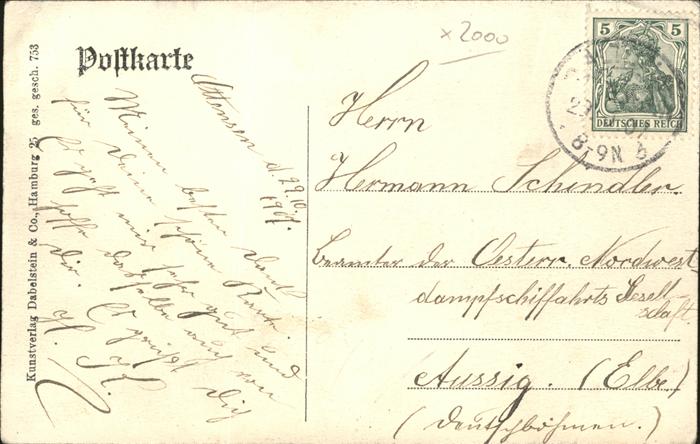 Postkarte
× 2000
5 5
DEUTSCHES REICH
8-9N
Kunstverlag Dabelstein & Co., Hamburg 25 ges. gesch. 753
Ottensen d. 29.10.
1907.
Meinen besten Dank
für Deine schöne Karte.
Es geht mir sehr gut und
hoffe dasselbe auch von
Dir. Es grüßt Dich
H. H.
Herrn
Hermann Schindler.
Beamter der Oesterr. Nordwest
dampfschiffahrts Gesell-
schaft
Aussig. (Elbe.)
(Deutschböhmen.)